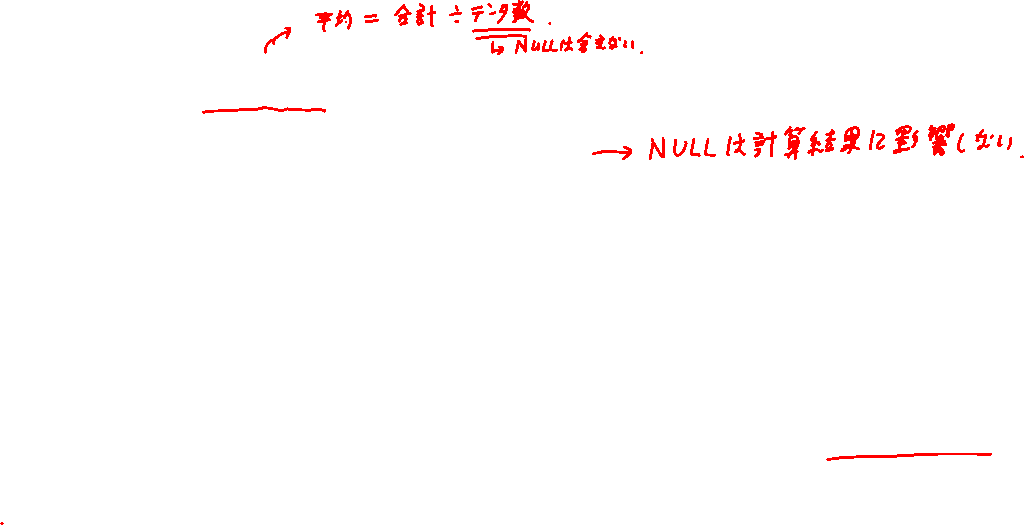 平均 = 合計 ÷ データ数.
↳ NULLは含まない.
→ NULLは計算結果に影響しない.